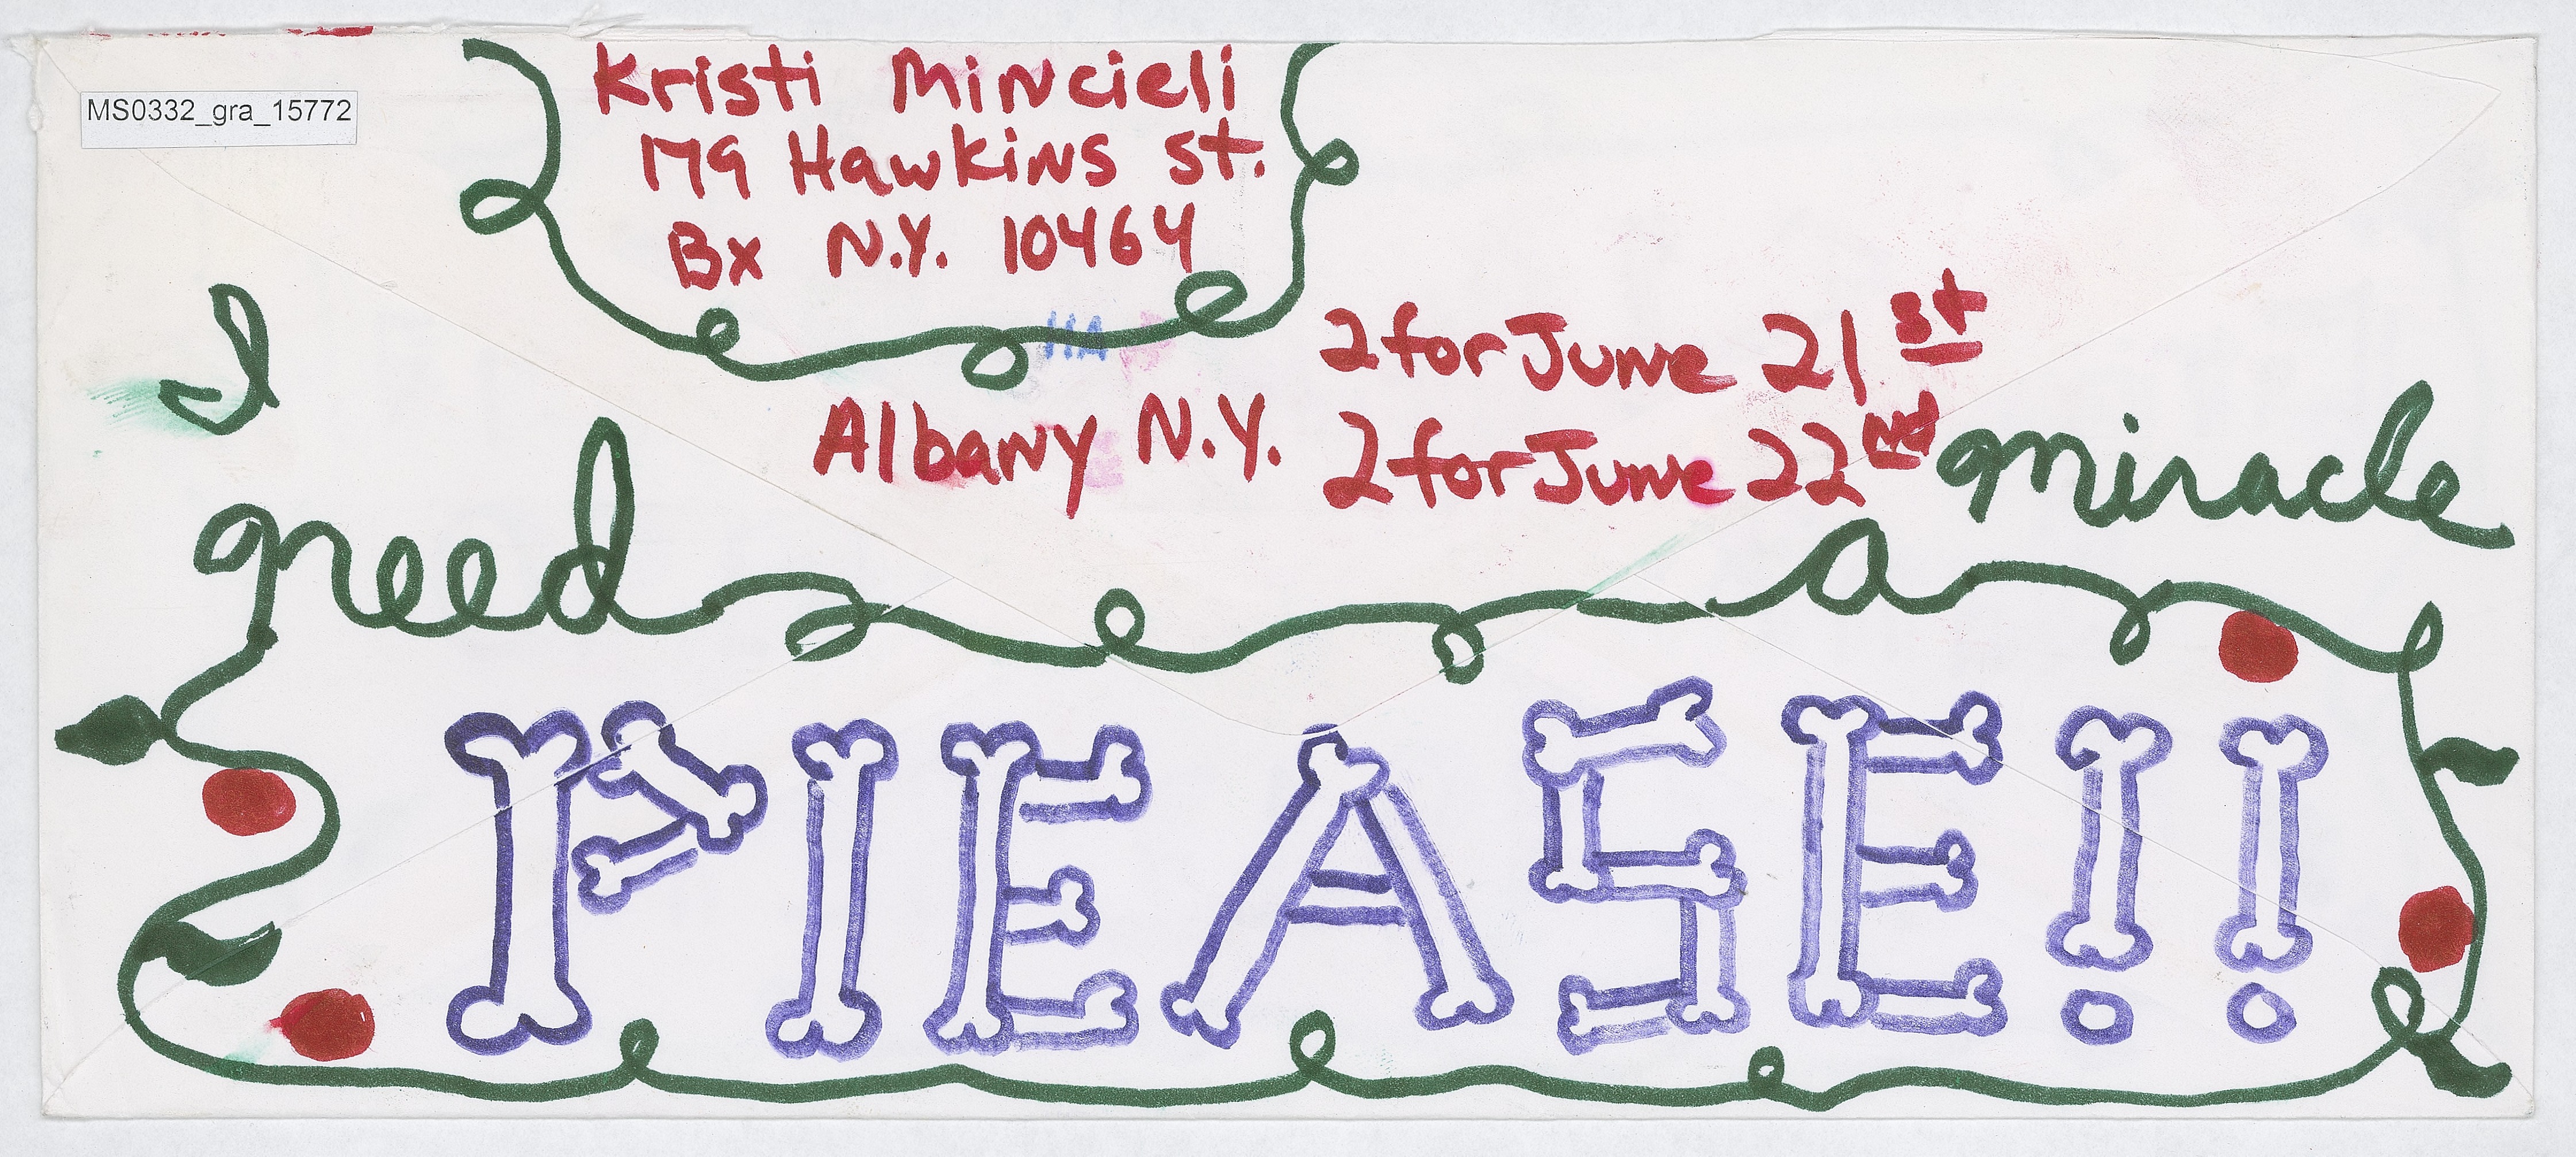 MS0332_gra_15772
Kristi Mincieli
179 Hawkins St.
Bx N.Y. 10464
2 for June 21st
Albany N.Y. 2 for June 22nd
I need a miracle
PlEASE!!